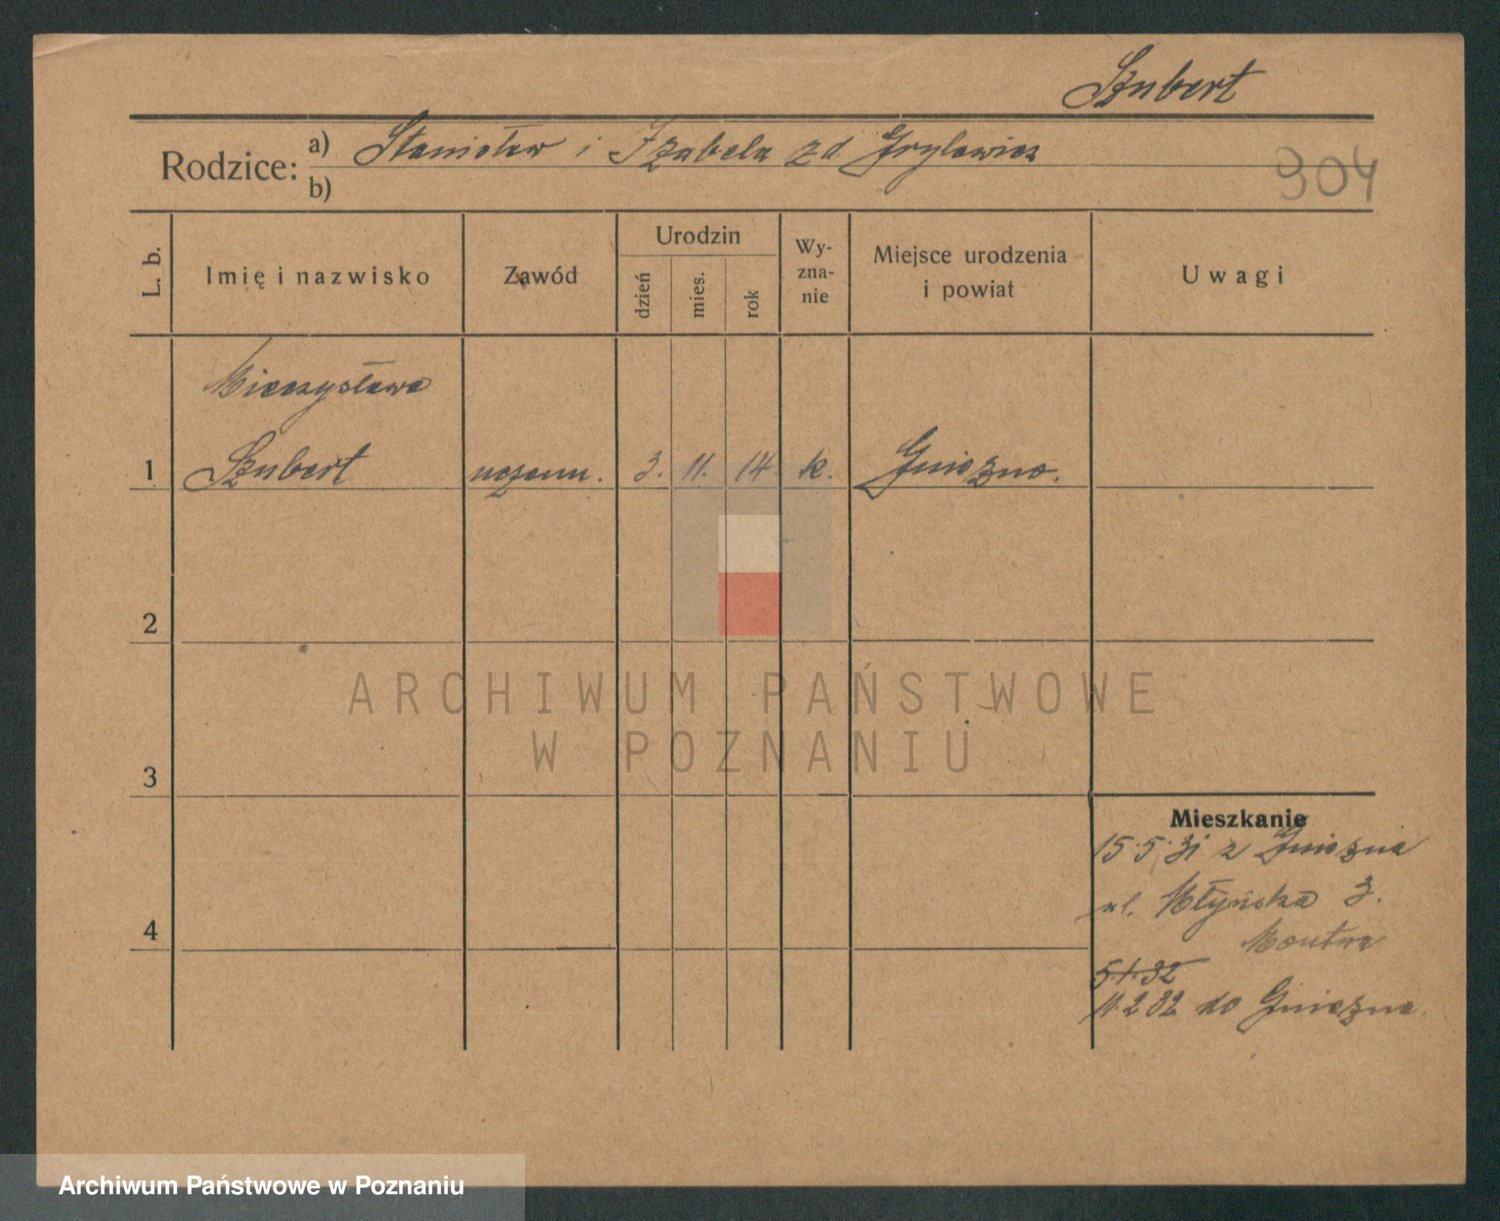 Szubert
Rodzice: a) Stanisław i Izabela zd Grylewicz
b)
904
L. b. Imię i nazwisko Zawód Urodzin dzień mies. rok Wy-zna-nie Miejsce urodzenia i powiat Uwagi
Mieczysława
1 Szubert uczenn. 3. 11. 14 k. Gniezno.
2
ARCHIWUM PAŃSTWOWE
W POZNANIU
3
Mieszkanie
15.5.31 z Gniezna
ul. Młyńska 3.
4
5.1.32
11.2.32 do Gniezna.
Archiwum Państwowe w Poznaniu